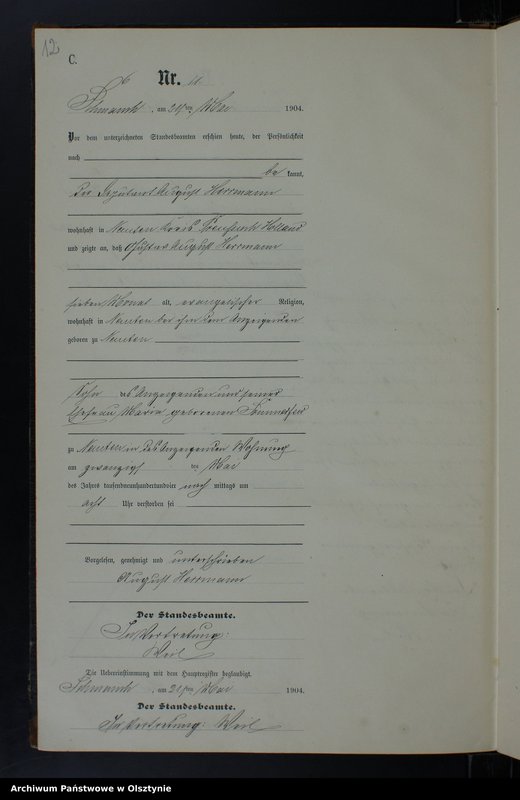 12
C.
Nr. 11
, am 21ten Mai 1904.
Vor dem unterzeichneten Standesbeamten erschien heute, der Persönlichkeit
nach
be kannt,
der Deputant August Herrmann
wohnhaft in Nauten Kreis Preußisch Holland
und zeigte an, daß Gustav August Herrmann
sieben Monat alt, evangelischer Religion,
wohnhaft in Nauten bei ihm dem Anzeigenden
geboren zu Nauten
Sohn des Anzeigenden und seiner
Ehefrau Maria geborenen
zu Nauten in des Anzeigenden Wohnung
am zwanzigst den Mai
des Jahres tausendneunhundertundvier nach mittags um
acht Uhr verstorben sei
Vorgelesen, genehmigt und unterschrieben
August Herrmann
Der Standesbeamte.
In Vertretung:
Weil
Die Uebereinstimmung mit dem Hauptregister beglaubigt.
, am 21ten Mai 1904.
Der Standesbeamte.
In Vertretung: Weil
Archiwum Państwowe w Olsztynie